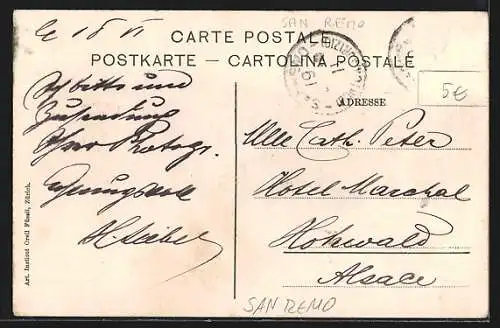 SAN REMO
CARTE POSTALE
POSTKARTE — CARTOLINA POSTALE
ADRESSE
5€
Ich bitte um
Zusendung
Ihrer Photogr.
Mlle Cath. Peter
Hotel Marchal
Hohwald
Alsace
Art. Institut Orell Füssli, Zürich.
SAN REMO